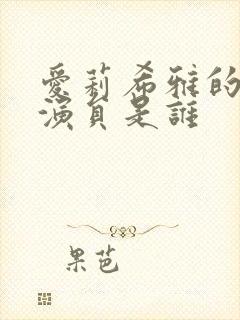 愛莉希雅的
演員是誰
果芭